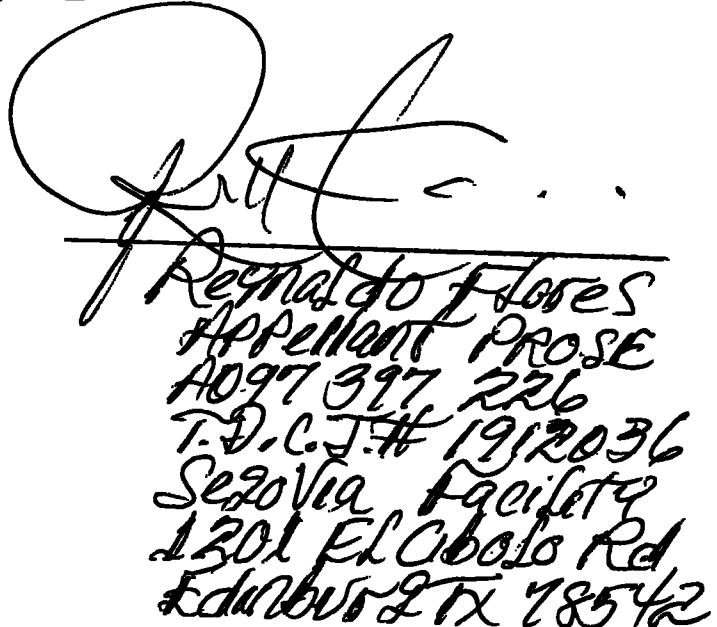 Reynaldo Flores
Appellant PROSE
A097 397 226
T.D.C.J.# 1912036
Segovia Facility
1201 El Cibolo Rd
Edinburg TX 78542